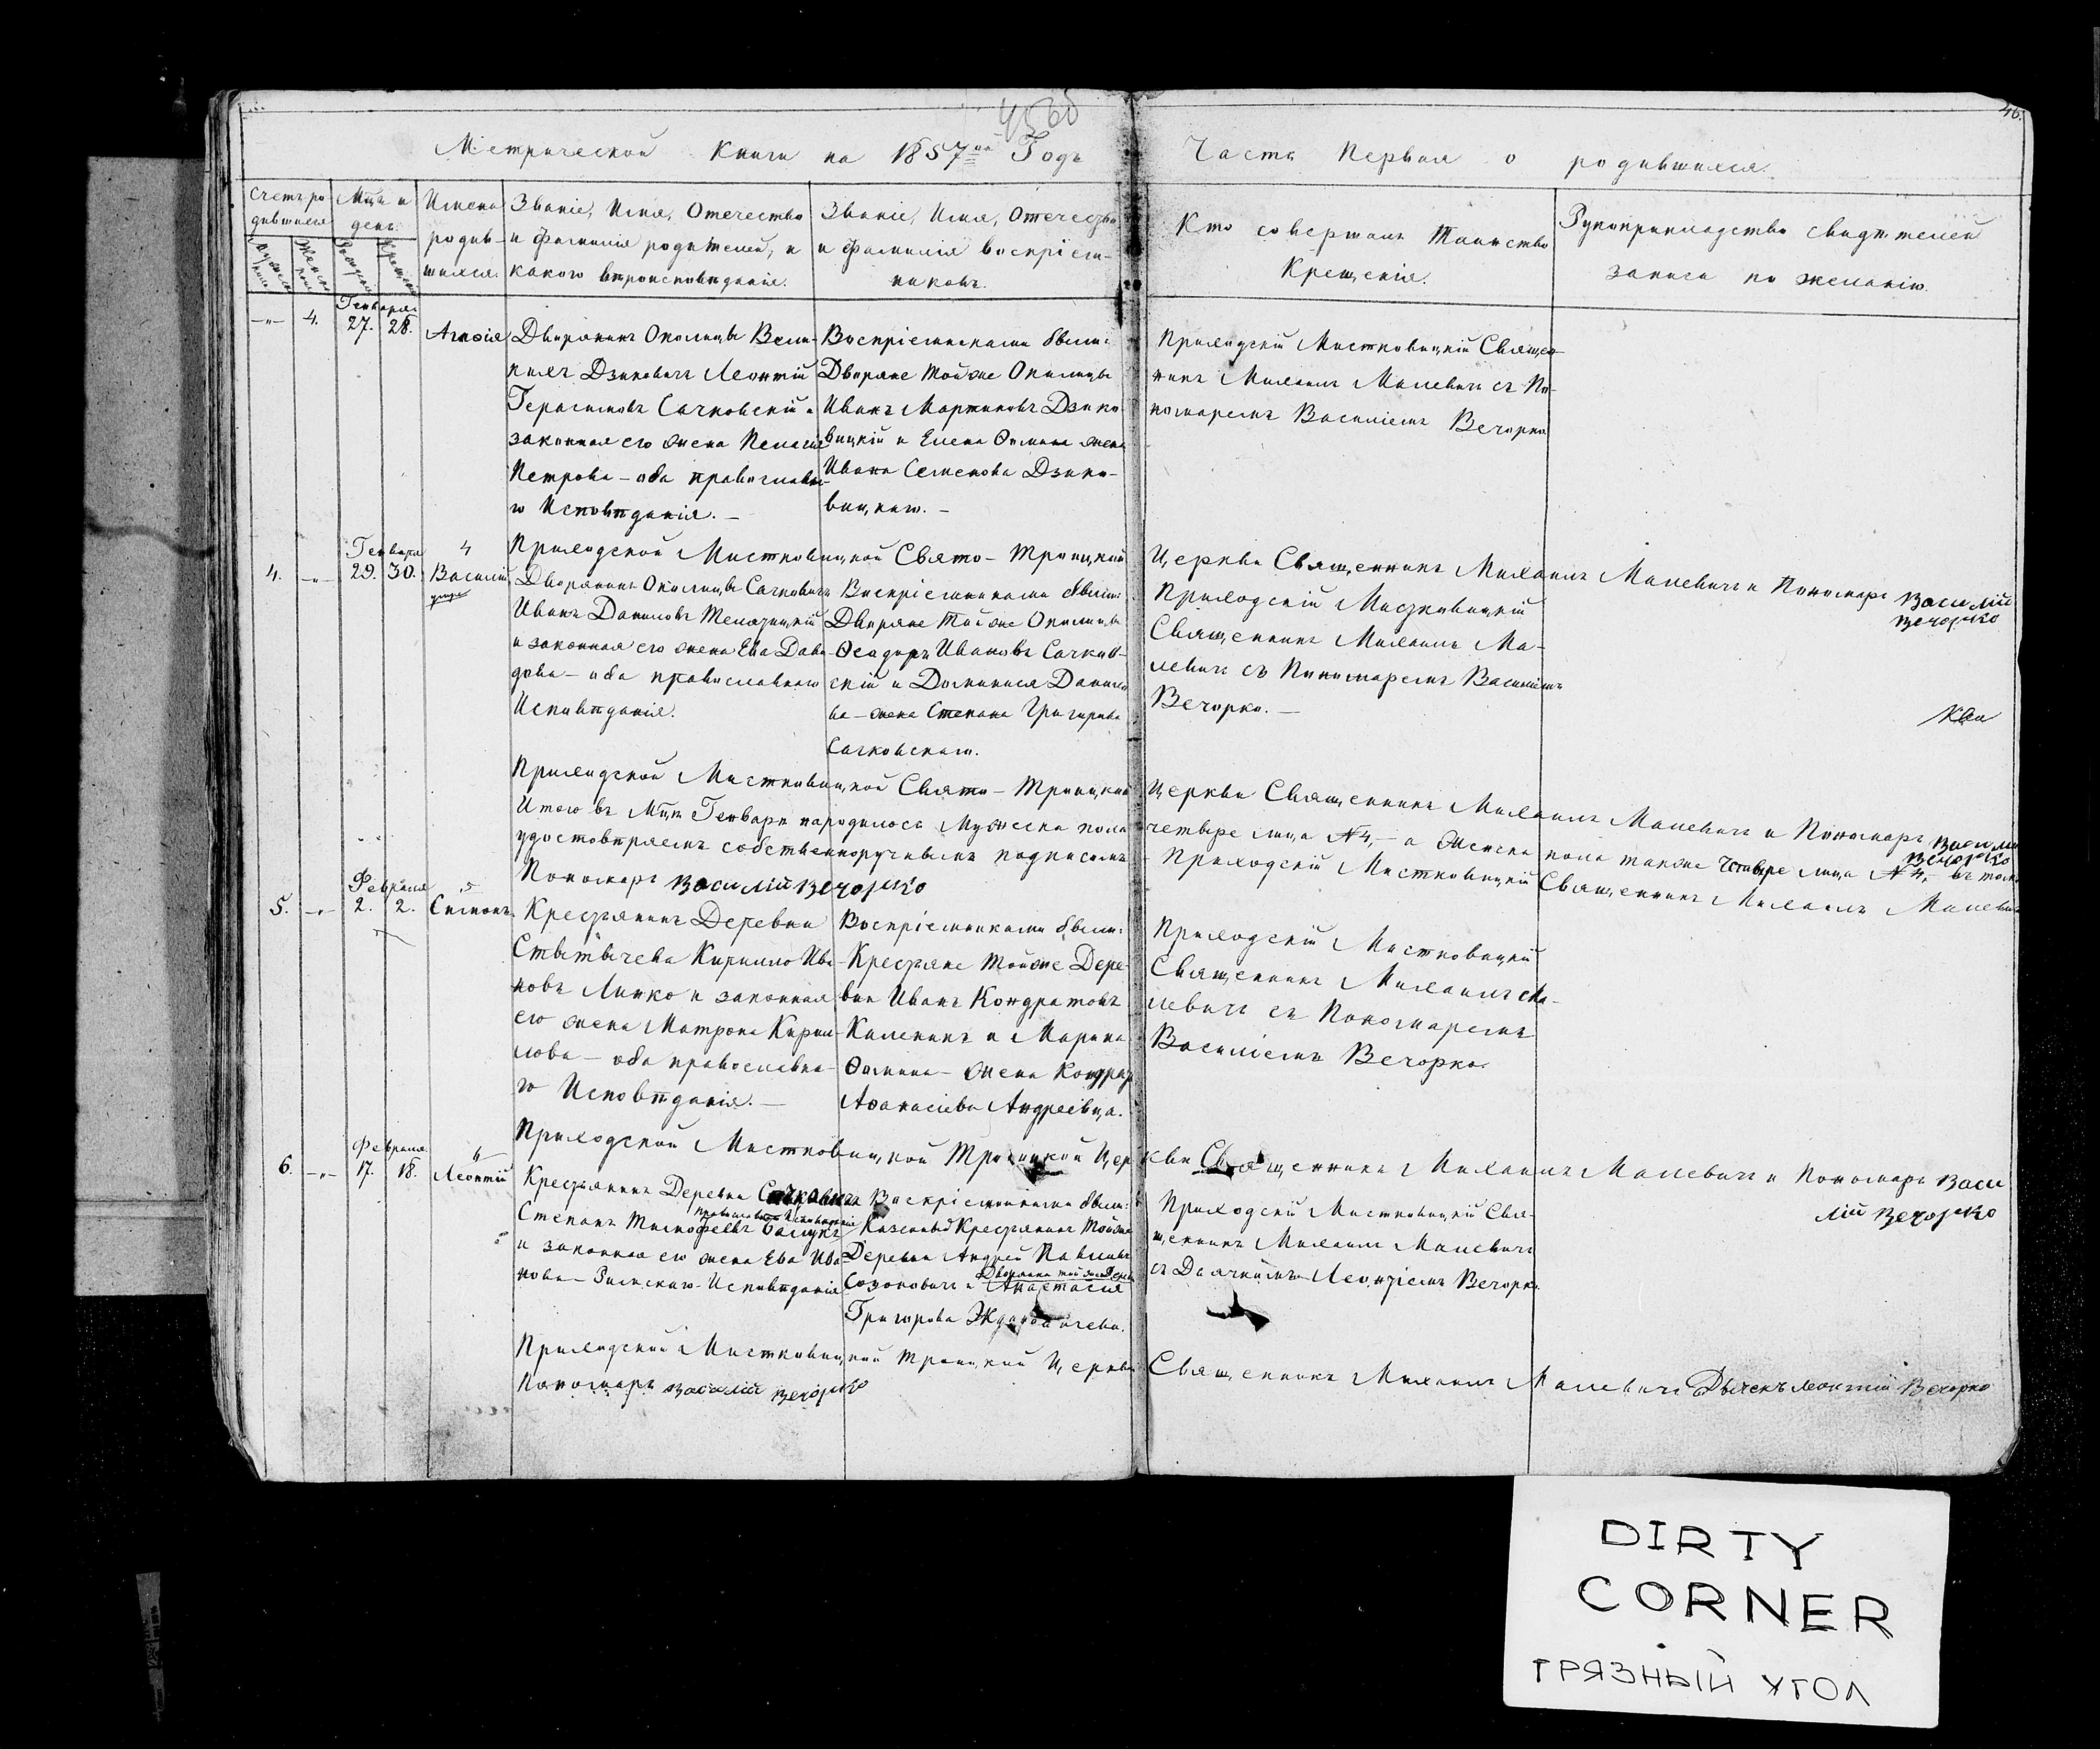 4560
46.
Метрической Книги на 1857й Годъ
Часть Первая о родившихся.
Счетъ ро
дившихся
Мцъ и
день.
Имена
родив-
шихся.
Званіе, Имя, Отечество
и Фамилія родителей, и
какого вѣроисповѣданія.
Званіе, Имя, Отечество
и Фамилія воспріем-
никовъ.
Кто совершалъ Таинство
Крещенія.
Рукоприкладство свидѣтелей
записи по желанію.
Генваря
4. 27. 28.
Агафія
Дворянинъ Околицы Вели-
Дзиковичъ Леонтій
Герасимовъ Сачковскій и
законная его жена Пелагія
Петрова – оба православна-
го Исповѣданія. –
Воспріемниками были:
Дворяне тойже Околицы
Иванъ Мартиновъ Дзико
вицкій и Елена Ѳомина жена
Ивана Семенова Дзико-
вицкаго. –
Приходскій Мистковицкій Священ-
никъ Михаилъ Малевичъ съ По-
номаремъ Василіемъ Вечорко
Приходской Мистковицкой Свято-Троицкой Церкви Священникъ Михаилъ Малевичъ и Пономарь Василій
Вечорко
Генваря
4. 29. 30.
4
Василій
Дворянинъ Околицы Сачковичъ
Иванъ Даниловъ Телятицкій
и законная его жена Ева Дави-
дова – оба православнаго
Исповѣданія.
Воспріемниками были:
Дворяне тойже Околицы
Ѳеодоръ Ивановъ Сачков-
скій и Доминися Данило
ва – жена Степана Григорьева
Сачковскаго.
Приходскій Мистковицкій
Священникъ Михаилъ Ма-
левичъ съ Пономаремъ Василіемъ
Вечорко. –
Приходской Мистковицкой Свято-Троицкой Церкви Священникъ Михаилъ Малевичъ и Пономарь Василій
Вечорко
Итого въ Мцѣ Генварѣ народилось Мужеска пола четыре лица №4, – а Женска пола также Четыре лица №4, – въ томъ
удостовѣряемъ собственноручнымъ подписомъ Приходскій Мистковицкій Священникъ Михаилъ Малевичъ
Пономарь Василій Вечорко
Февраля
5. 2. 2.
5
Симонъ.
Крестянинъ Деревни
Стытычева Кирилло Ива-
новъ Линко и законная
его жена Матрона Кирил-
лова – оба православна-
го Исповѣданія. –
Воспріемниками были:
Крестяне тойже Дере-
вни Иванъ Кондратовъ
Каленикъ и Марина
Ѳомина – жена Кондрат
Аѳанасіева Андреевца.
Приходскій Мистковицкій
Священникъ Михаилъ Ма-
левичъ съ Пономаремъ
Василіемъ Вечорко.
Приходской Мистковицкой Троицкой Церкви Священникъ Михаилъ Малевичъ и Пономарь Васи
лій Вечорко
Февраля
6. 17. 18.
6
Леонтій
Крестянинъ Деревни Сачковичъ
Православнаго Исповѣданія
Степанъ Тимофеевъ
и законная его жена Ева Ива
нова – Римскаго Исповѣданія
Воспріемниками были:
Казенный Крестянинъ Тойже
Деревни Андрей Павловъ
Дворянка той же Дерев
Созоновичъ и Анастасія
Григорова Ждановичева.
Приходскій Мистковицкій Свя-
щенникъ Михаилъ Малевичъ
съ Дьячкомъ Леонтіемъ Вечорко
Приходской Мистковицкой Троицкой Церкви Священникъ Михаилъ Малевичъ Дьячекъ Леонтій Вечорко
Пономарь Василій Вечорко
DIRTY
CORNER
ГРЯЗНЫЙ УГОЛ